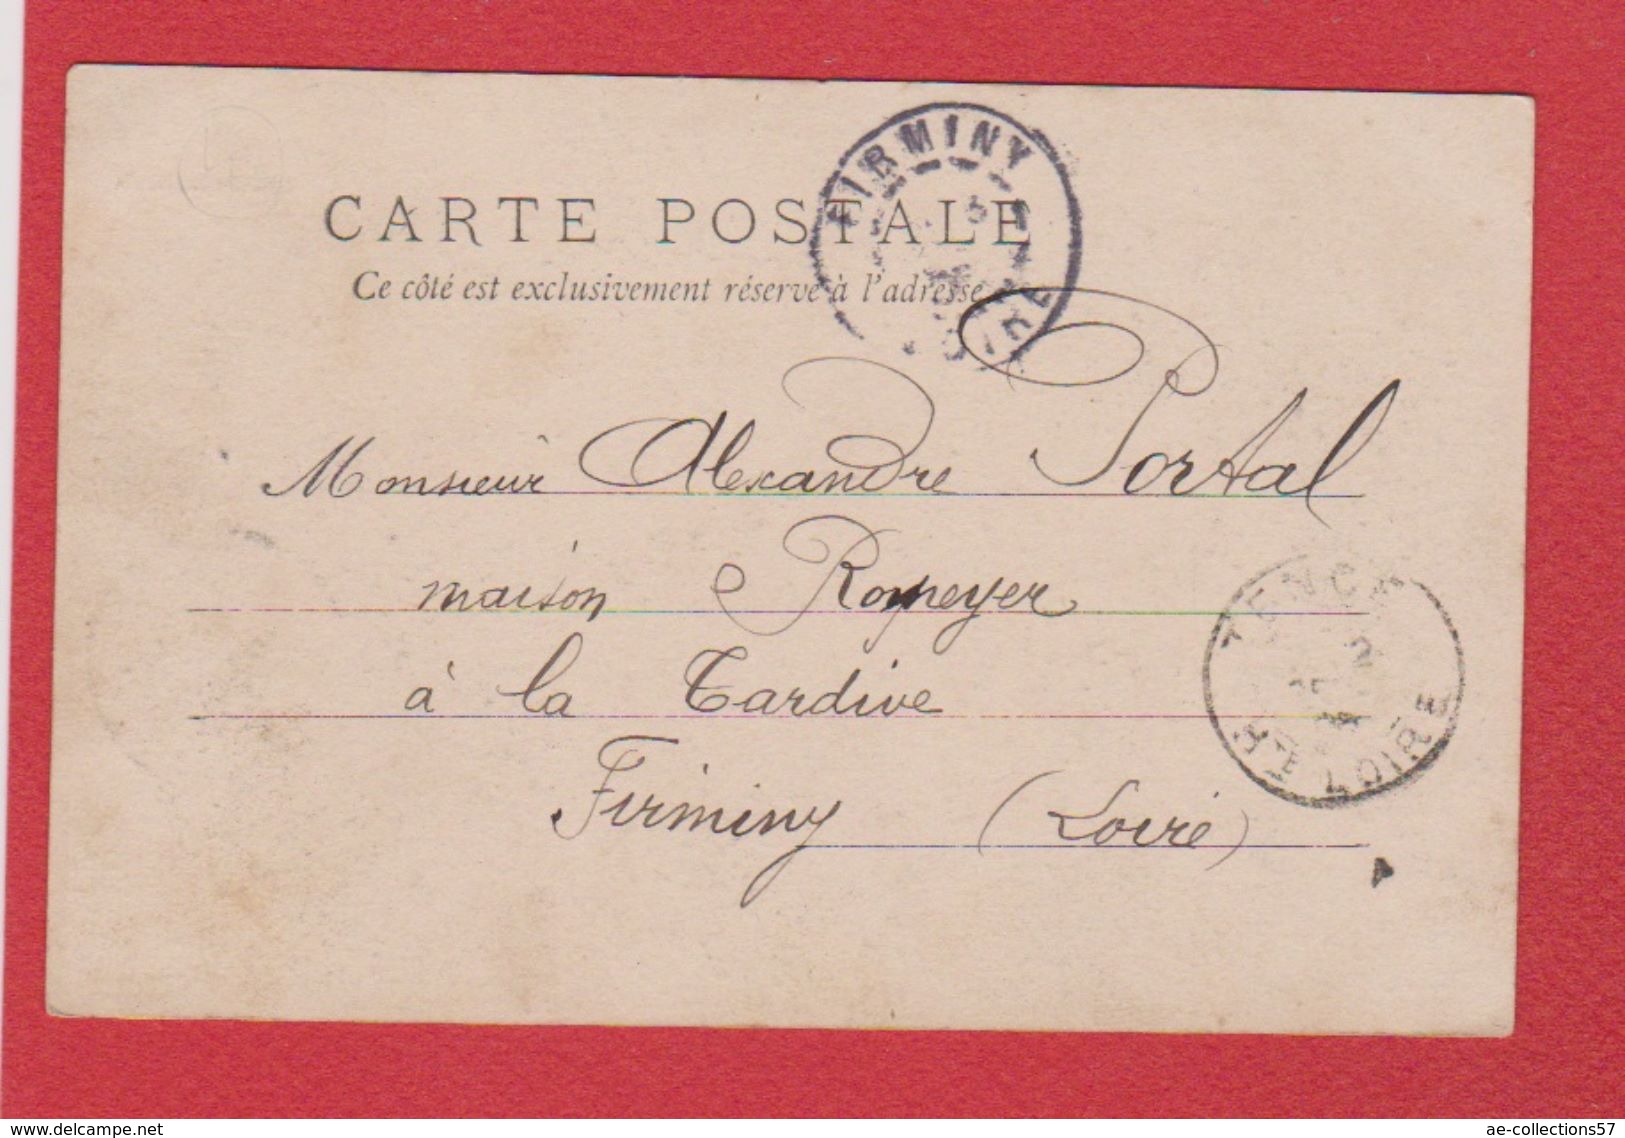 FIRMINY
LOIRE
CARTE POSTALE
Ce côté est exclusivement réservé à l'adresse
Monsieur Alexandre Portal
maison Romeyer
TENCE
2
HTE LOIRE
à la Tardive
Firminy (Loire)
www.delcampe.net
ae-collections57